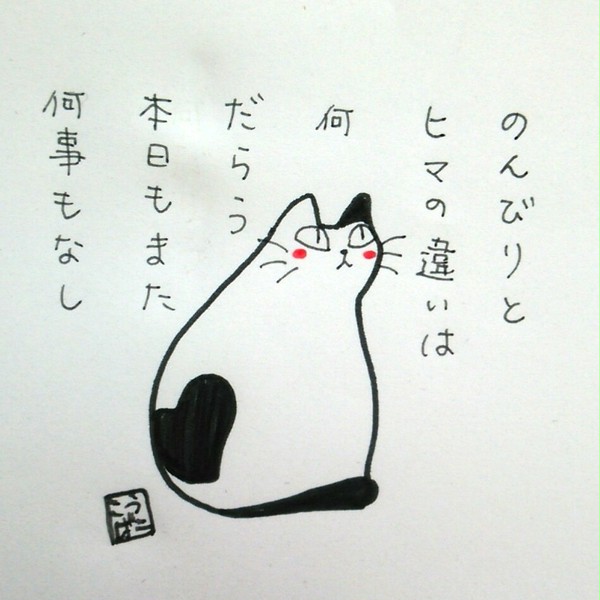 のんびりと
ヒマの違いは
何
だらう
本日もまた
何事もなし